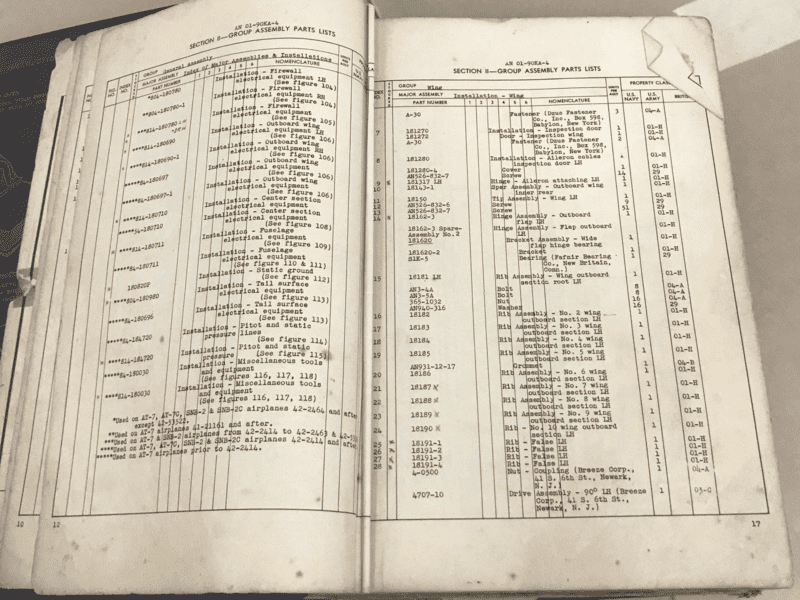 AN 01-90KA-4
SECTION II—GROUP ASSEMBLY PARTS LISTS
GROUP General Assembly
MAJOR ASSEMBLY Index of Major Assemblies & Installations
PART NUMBER 1 2 3 4 5 6 NOMENCLATURE
*814-180780 Installation - Firewall
electrical equipment LH
(See figure 104)
*814-180780-1 Installation - Firewall
electrical equipment RH
(See figure 104)
Installation - Firewall
electrical equipment
(See figure 105)
****814-180690 Installation - Outboard wing
electrical equipment LH
(See figure 106)
****814-180690-1 Installation - Outboard wing
electrical equipment RH
(See figure 106)
Installation - Outboard wing
electrical equipment
(See figure 106)
Installation - Outboard wing
electrical equipment
(See figure 106)
Installation - Center section
electrical equipment
Installation - Center section
electrical equipment
(See figure 108)
Installation - Fuselage
electrical equipment
(See figure 109)
Installation - Fuselage
electrical equipment
(See figure 110 & 111)
Installation - Static ground
(See figure 112)
180820P Installation - Tail surface
electrical equipment
(See figure 113)
Installation - Tail surface
electrical equipment
(See figure 113)
Installation - Pitot and static
pressure lines
(See figure 114)
Installation - Pitot and static
pressure
(See figure 115)
Installation - Miscellaneous tools
and equipment
(See figures 116, 117, 118)
Installation - Miscellaneous tools
and equipment
(See figures 116, 117, 118)
*Used on AT-7, AT-7C, SNB-2 & SNB-2C airplanes 42-2464 and after
except 42-53522.
**Used on AT-7 airplanes 41-21161 and after.
***Used on AT-7 & SNB-2 airplanes from 42-2414 to 42-2463 &
****Used on AT-7, AT-7C, SNB-2 & SNB-2C airplanes 42-2414 and after.
*****Used on AT-7 airplanes prior to 42-2414.
10
12
AN 01-90KA-4
SECTION II—GROUP ASSEMBLY PARTS LISTS
GROUP Wing
MAJOR ASSEMBLY Installation - Wing
PROPERTY CLASS
PART NUMBER 1 2 3 4 5 6 NOMENCLATURE U.S. NAVY U.S. ARMY
A-30 Fastener (Dzus Fastener 3 04-A
Co., Inc., Box 598,
Babylon, New York)
7 181270 Installation - Inspection door 1 01-H
181272 Door - Inspection wing 1 01-H
A-30 Fastener (Dzus Fastener 2 04-A
Co., Inc., Box 598,
Babylon, New York)
8 181280 Installation - Aileron cables 01-H
inspection door LH
181280-4 Cover 1 01-H
AN526-832-7 Screw 14 29
9 181317 LH Hinge - Aileron attaching LH 1 01-H
10 18143-1 Spar Assembly - Outboard wing 1 01-H
inner rear
11 18150 Tip Assembly - Wing LH 1 01-H
12 AN526-832-6 Screw 9 29
13 AN526-832-7 Screw 51 29
14 18162-3 Hinge Assembly - Outboard 1 01-H
flap LH
18162-3 Spare- Hinge Assembly - Flap outboard 01-H
Assembly No.2 LH
181620 Bracket Assembly - Wide 1 01-H
flap hinge bearing
181620-2 Bracket 1 01-H
S1K-5 Bearing (Fafnir Bearing 1 29
Co., New Britain,
Conn.)
15 18181 LH Rib Assembly - Wing outboard 1 01-H
section root LH
AN3-4A Bolt 8 04-A
AN3-5A Bolt 8 04-A
365-1032 Nut 16 04-A
AN940-316 Washer 16 29
16 18182 Rib Assembly - No. 2 wing 1 01-H
outboard section LH
17 18183 Rib Assembly - No. 3 wing 1 01-H
outboard section LH
18 18184 Rib Assembly - No. 4 wing 1 01-H
outboard section LH
19 18185 Rib Assembly - No. 5 wing 1 01-H
outboard section LH
AN931-12-17 Grommet 1 04-B
20 18186 Rib Assembly - No. 6 wing 1 01-H
outboard section LH
21 18187 Rib Assembly - No. 7 wing 1 01-H
outboard section LH
22 18188 Rib Assembly - No. 8 wing 1 01-H
outboard section LH
23 18189 Rib Assembly - No. 9 wing 1 01-H
outboard section LH
24 18190 Rib - No. 10 wing outboard 1 01-H
section LH
25 18191-1 Rib - False LH 1 01-H
26 18191-2 Rib - False LH 1 01-H
27 18191-3 Rib - False LH 1 01-H
28 18191-4 Rib - False LH 1 01-H
4-0500 Nut - Coupling (Breeze Corp., 1 04-A
41 S. 6th St., Newark,
N. J.)
4707-10 Drive Assembly - 90° LH (Breeze 1 03-C
Corp., 41 S. 6th St.,
Newark, N. J.)
17